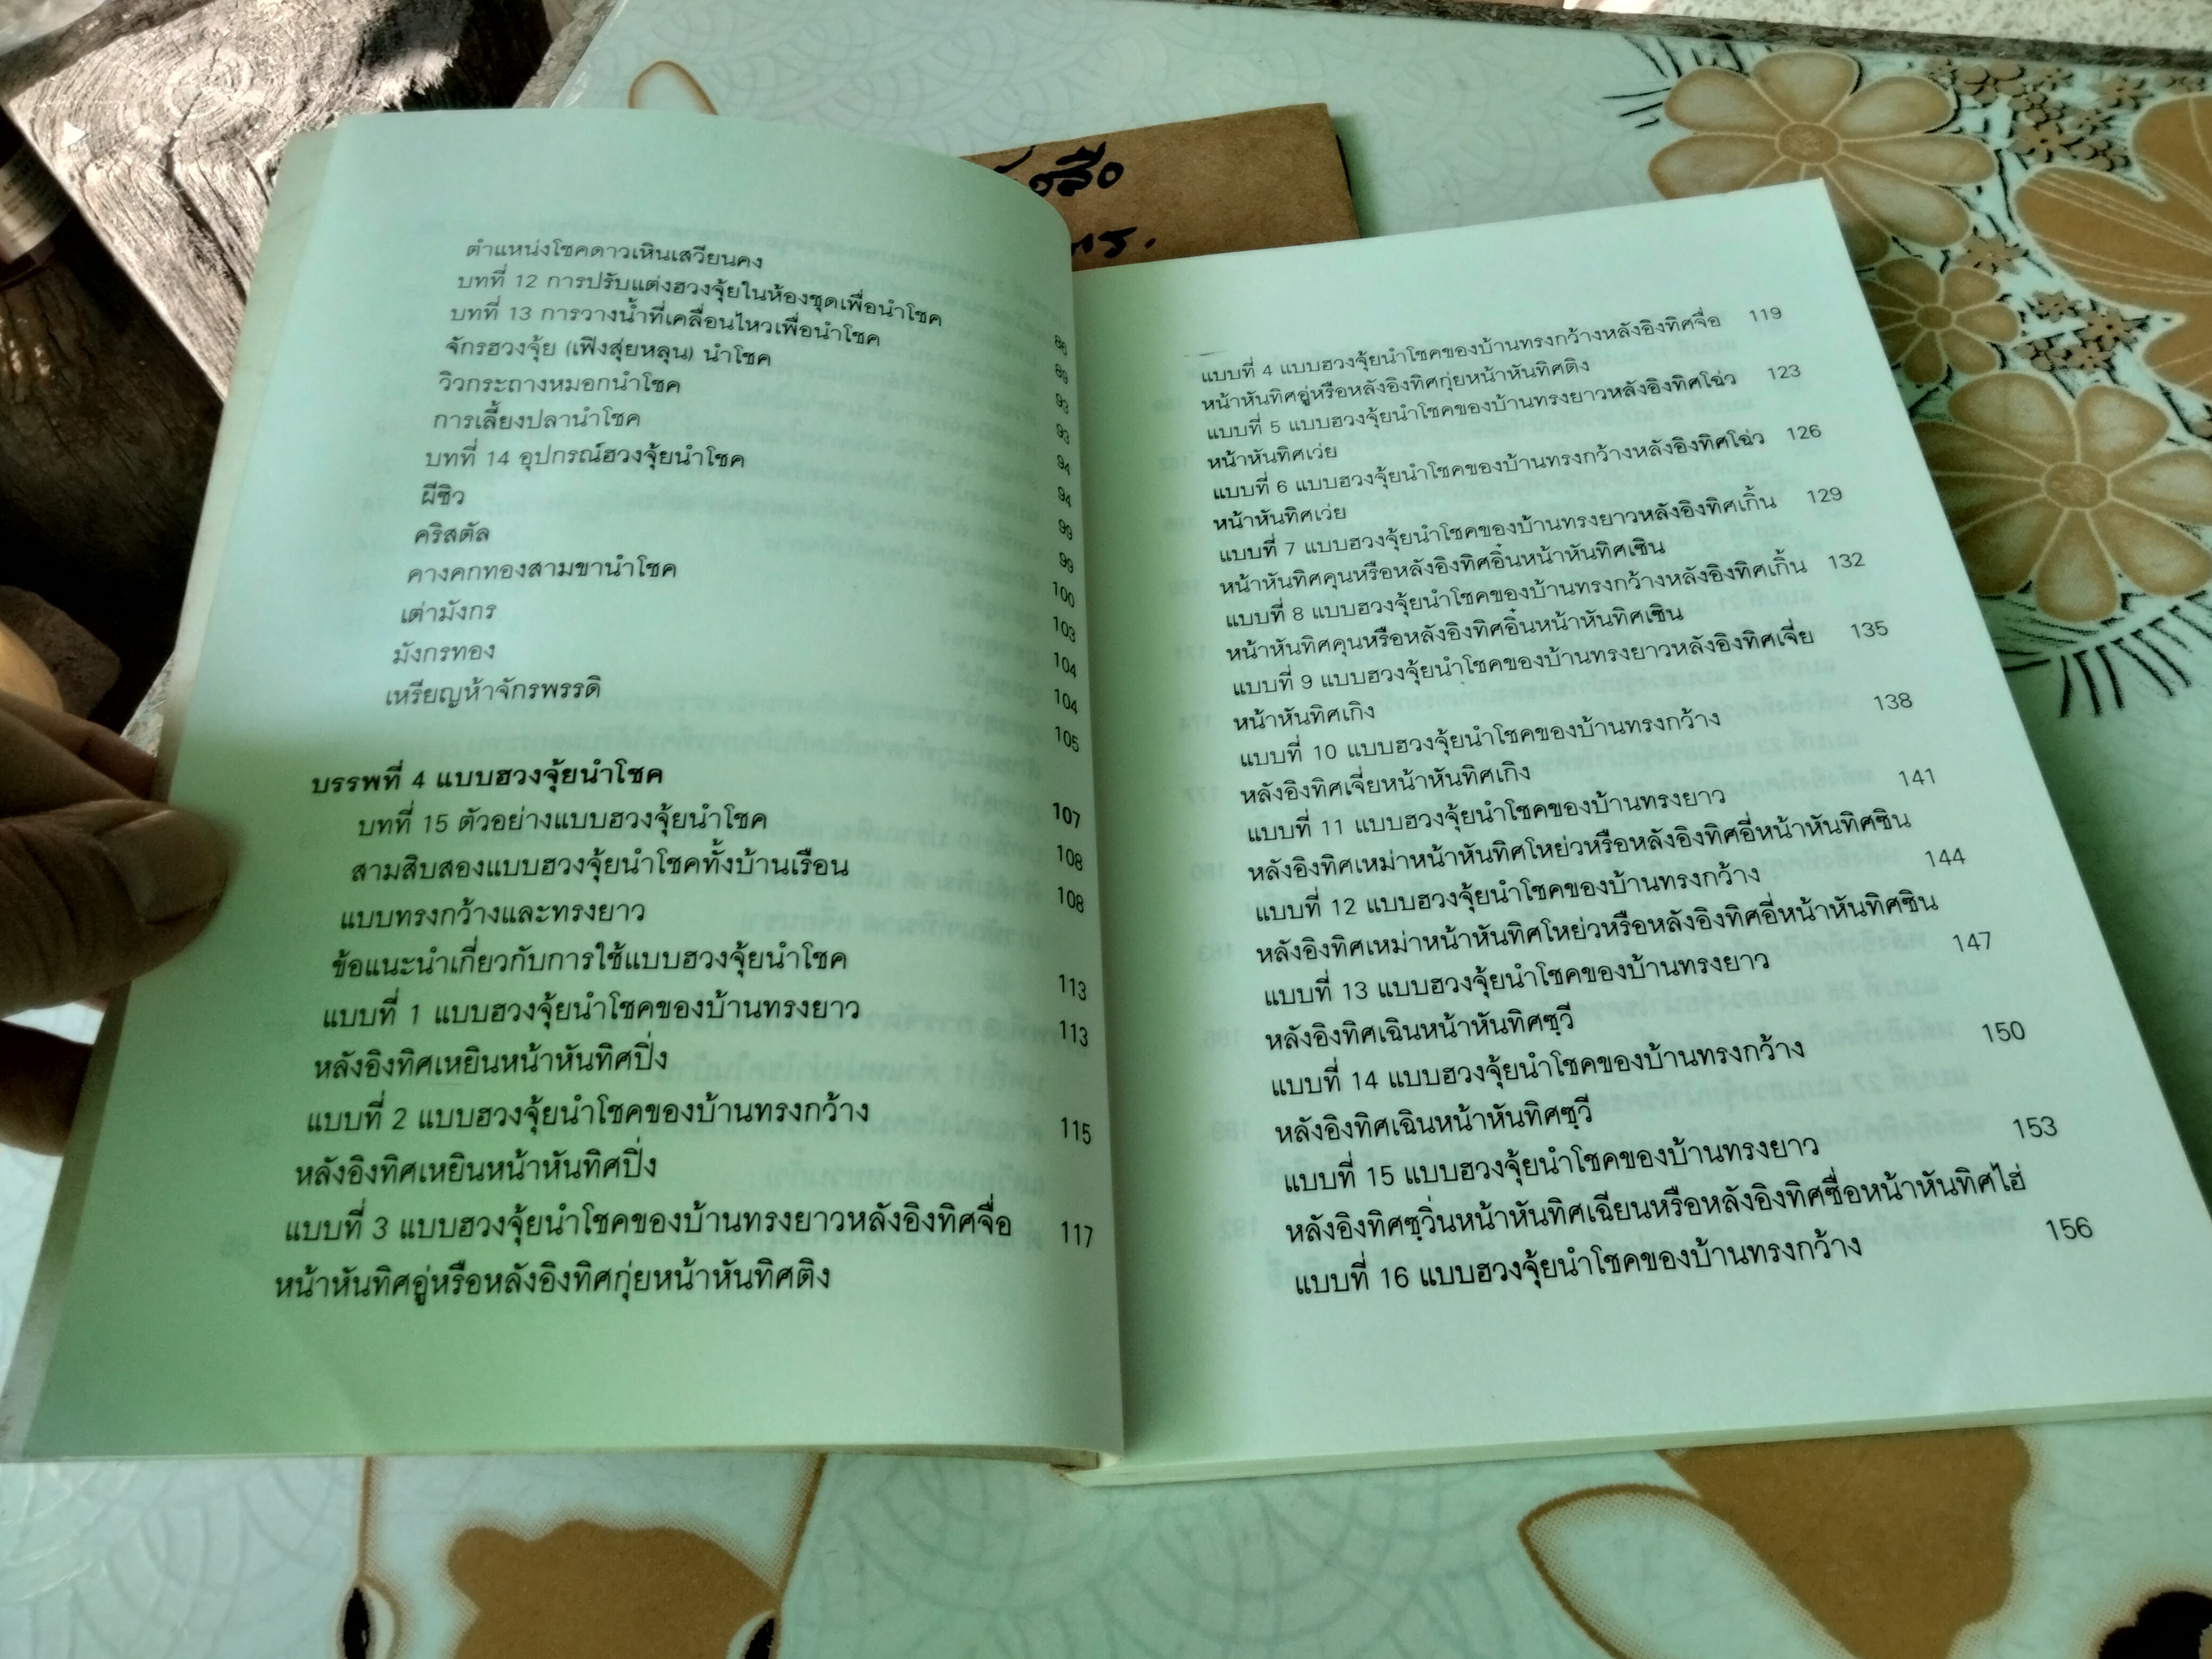 ตำแหน่งโชคดาวเหินเสวียนคง 86
บทที่ 12 การปรับแต่งฮวงจุ้ยในห้องชุดเพื่อนำโชค 89
บทที่ 13 การวางน้ำที่เคลื่อนไหวเพื่อนำโชค 93
จักรฮวงจุ้ย (เฟิงสุ่ยหลุน) นำโชค 93
วิวกระถางหมอกนำโชค 94
การเลี้ยงปลานำโชค 94
บทที่ 14 อุปกรณ์ฮวงจุ้ยนำโชค 99
ผีซิว 99
คริสตัล 100
คางคกทองสามขานำโชค 103
เต่ามังกร 104
มังกรทอง 104
เหรียญห้าจักรพรรดิ 105
บรรพที่ 4 แบบฮวงจุ้ยนำโชค 107
บทที่ 15 ตัวอย่างแบบฮวงจุ้ยนำโชค 108
สามสิบสองแบบฮวงจุ้ยนำโชคทั้งบ้านเรือน 108
แบบทรงกว้างและทรงยาว
ข้อแนะนำเกี่ยวกับการใช้แบบฮวงจุ้ยนำโชค 113
แบบที่ 1 แบบฮวงจุ้ยนำโชคของบ้านทรงยาว 113
หลังอิงทิศเหยินหน้าหันทิศปิ่ง
แบบที่ 2 แบบฮวงจุ้ยนำโชคของบ้านทรงกว้าง 115
หลังอิงทิศเหยินหน้าหันทิศปิ่ง
แบบที่ 3 แบบฮวงจุ้ยนำโชคของบ้านทรงยาวหลังอิงทิศจื่อ 117
หน้าหันทิศอู่หรือหลังอิงทิศกุ่ยหน้าหันทิศติง
แบบที่ 4 แบบฮวงจุ้ยนำโชคของบ้านทรงกว้างหลังอิงทิศจื่อ 119
หน้าหันทิศอู่หรือหลังอิงทิศกุ่ยหน้าหันทิศติง
แบบที่ 5 แบบฮวงจุ้ยนำโชคของบ้านทรงยาวหลังอิงทิศโฉ่ว 123
หน้าหันทิศเว่ย
แบบที่ 6 แบบฮวงจุ้ยนำโชคของบ้านทรงกว้างหลังอิงทิศโฉ่ว 126
หน้าหันทิศเว่ย
แบบที่ 7 แบบฮวงจุ้ยนำโชคของบ้านทรงยาวหลังอิงทิศเกิ้น 129
หน้าหันทิศคุนหรือหลังอิงทิศอิ๋นหน้าหันทิศเซิน
แบบที่ 8 แบบฮวงจุ้ยนำโชคของบ้านทรงกว้างหลังอิงทิศเกิ้น 132
หน้าหันทิศคุนหรือหลังอิงทิศอิ๋นหน้าหันทิศเซิน
แบบที่ 9 แบบฮวงจุ้ยนำโชคของบ้านทรงยาวหลังอิงทิศเจี่ย 135
หน้าหันทิศเกิง
แบบที่ 10 แบบฮวงจุ้ยนำโชคของบ้านทรงกว้าง 138
หลังอิงทิศเจี่ยหน้าหันทิศเกิง
แบบที่ 11 แบบฮวงจุ้ยนำโชคของบ้านทรงยาว 141
หลังอิงทิศเหม่าหน้าหันทิศโหย่วหรือหลังอิงทิศอี่หน้าหันทิศซิน
แบบที่ 12 แบบฮวงจุ้ยนำโชคของบ้านทรงกว้าง 144
หลังอิงทิศเหม่าหน้าหันทิศโหย่วหรือหลังอิงทิศอี่หน้าหันทิศซิน
แบบที่ 13 แบบฮวงจุ้ยนำโชคของบ้านทรงยาว 147
หลังอิงทิศเฉินหน้าหันทิศซฺวี
แบบที่ 14 แบบฮวงจุ้ยนำโชคของบ้านทรงกว้าง 150
หลังอิงทิศเฉินหน้าหันทิศซฺวี
แบบที่ 15 แบบฮวงจุ้ยนำโชคของบ้านทรงยาว 153
หลังอิงทิศซฺวิ่นหน้าหันทิศเฉียนหรือหลังอิงทิศซื่อหน้าหันทิศไฮ่
แบบที่ 16 แบบฮวงจุ้ยนำโชคของบ้านทรงกว้าง 156